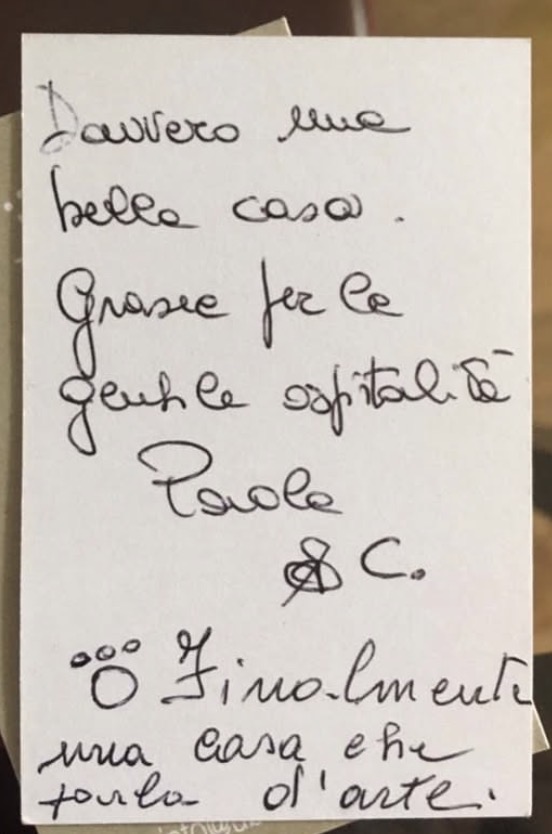 Davvero una
bella casa.
Grazie per la
gentile ospitalità
Paola
& C.
Finalmente
una casa che
parla d'arte.